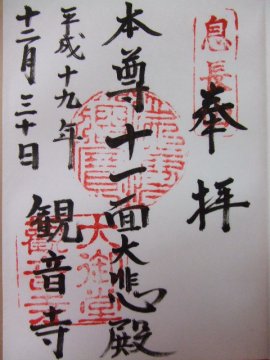 奉拝
息長
本尊十一面大悲殿
大御堂
観音寺
平成十九年
十二月三十日